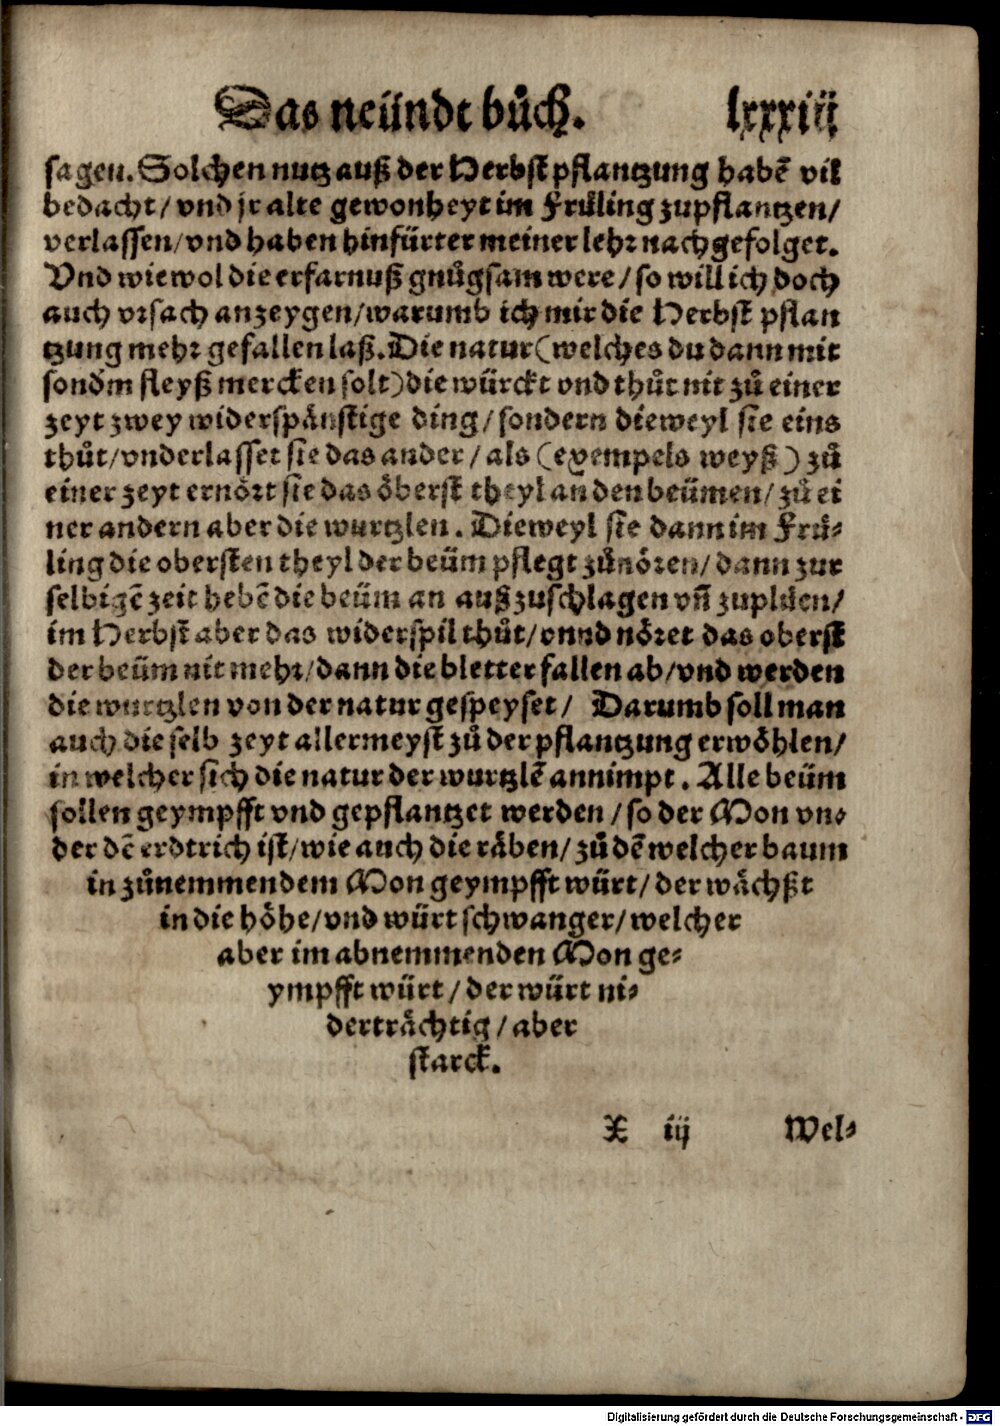 Das neündt bůch. lxxxiij
sagen. Solchen nutz auß der Herbst pflantzung habẽ vil
bedacht / vnd jr alte gewonheyt im Früling zupflantzen /
verlassen / vnd haben hinfürter meiner lehr nachgefolget.
Vnd wiewol die erfarnuß gnůgsam were / so will ich doch
auch vrsach anzeygen / warumb ich mir die Herbst pflan
tzung mehr gefallen laß. Die natur (welches du dann mit
sondm fleyß mercken solt) die würckt vnd thůt nit zů einer
zeyt zwey widerspånstige ding / sondern dieweyl sie eins
thůt / vnderlasset sie das ander / als (exempels weyß) zů
einer zeyt ernört sie das öberst theyl an den beümen / zů ei
ner andern aber die wurtzlen. Dieweyl sie dann im Frü-
ling die obersten theyl der beüm pflegt zůnören / dann zur
selbigẽ zeit hebẽ die beüm an außzuschlagen vñ zuplüen /
im Herbst aber das widerspil thůt / vnnd nöret das oberst
der beüm nit mehr / dann die bletter fallen ab / vnd werden
die wurtzlen von der natur gespeyset / Darumb soll man
auch die selb zeyt allermeyst zů der pflantzung erwöhlen /
in welcher sich die natur der wurtzlẽ annimpt. Alle beüm
sollen geympfft vnd gepflantzet werden / so der Mon vn-
der dẽ erdtrich ist / wie auch die råben / zů dẽ welcher baum
in zůnemmendem Mon geympfft würt / der wåchßt
in die höhe / vnd würt schwanger / welcher
aber im abnemmenden Mon ge-
ympfft würt / der würt ni-
derträchtig / aber
starck.
X iij Wel-
Digitalisierung gefördert durch die Deutsche Forschungsgemeinschaft - DFG